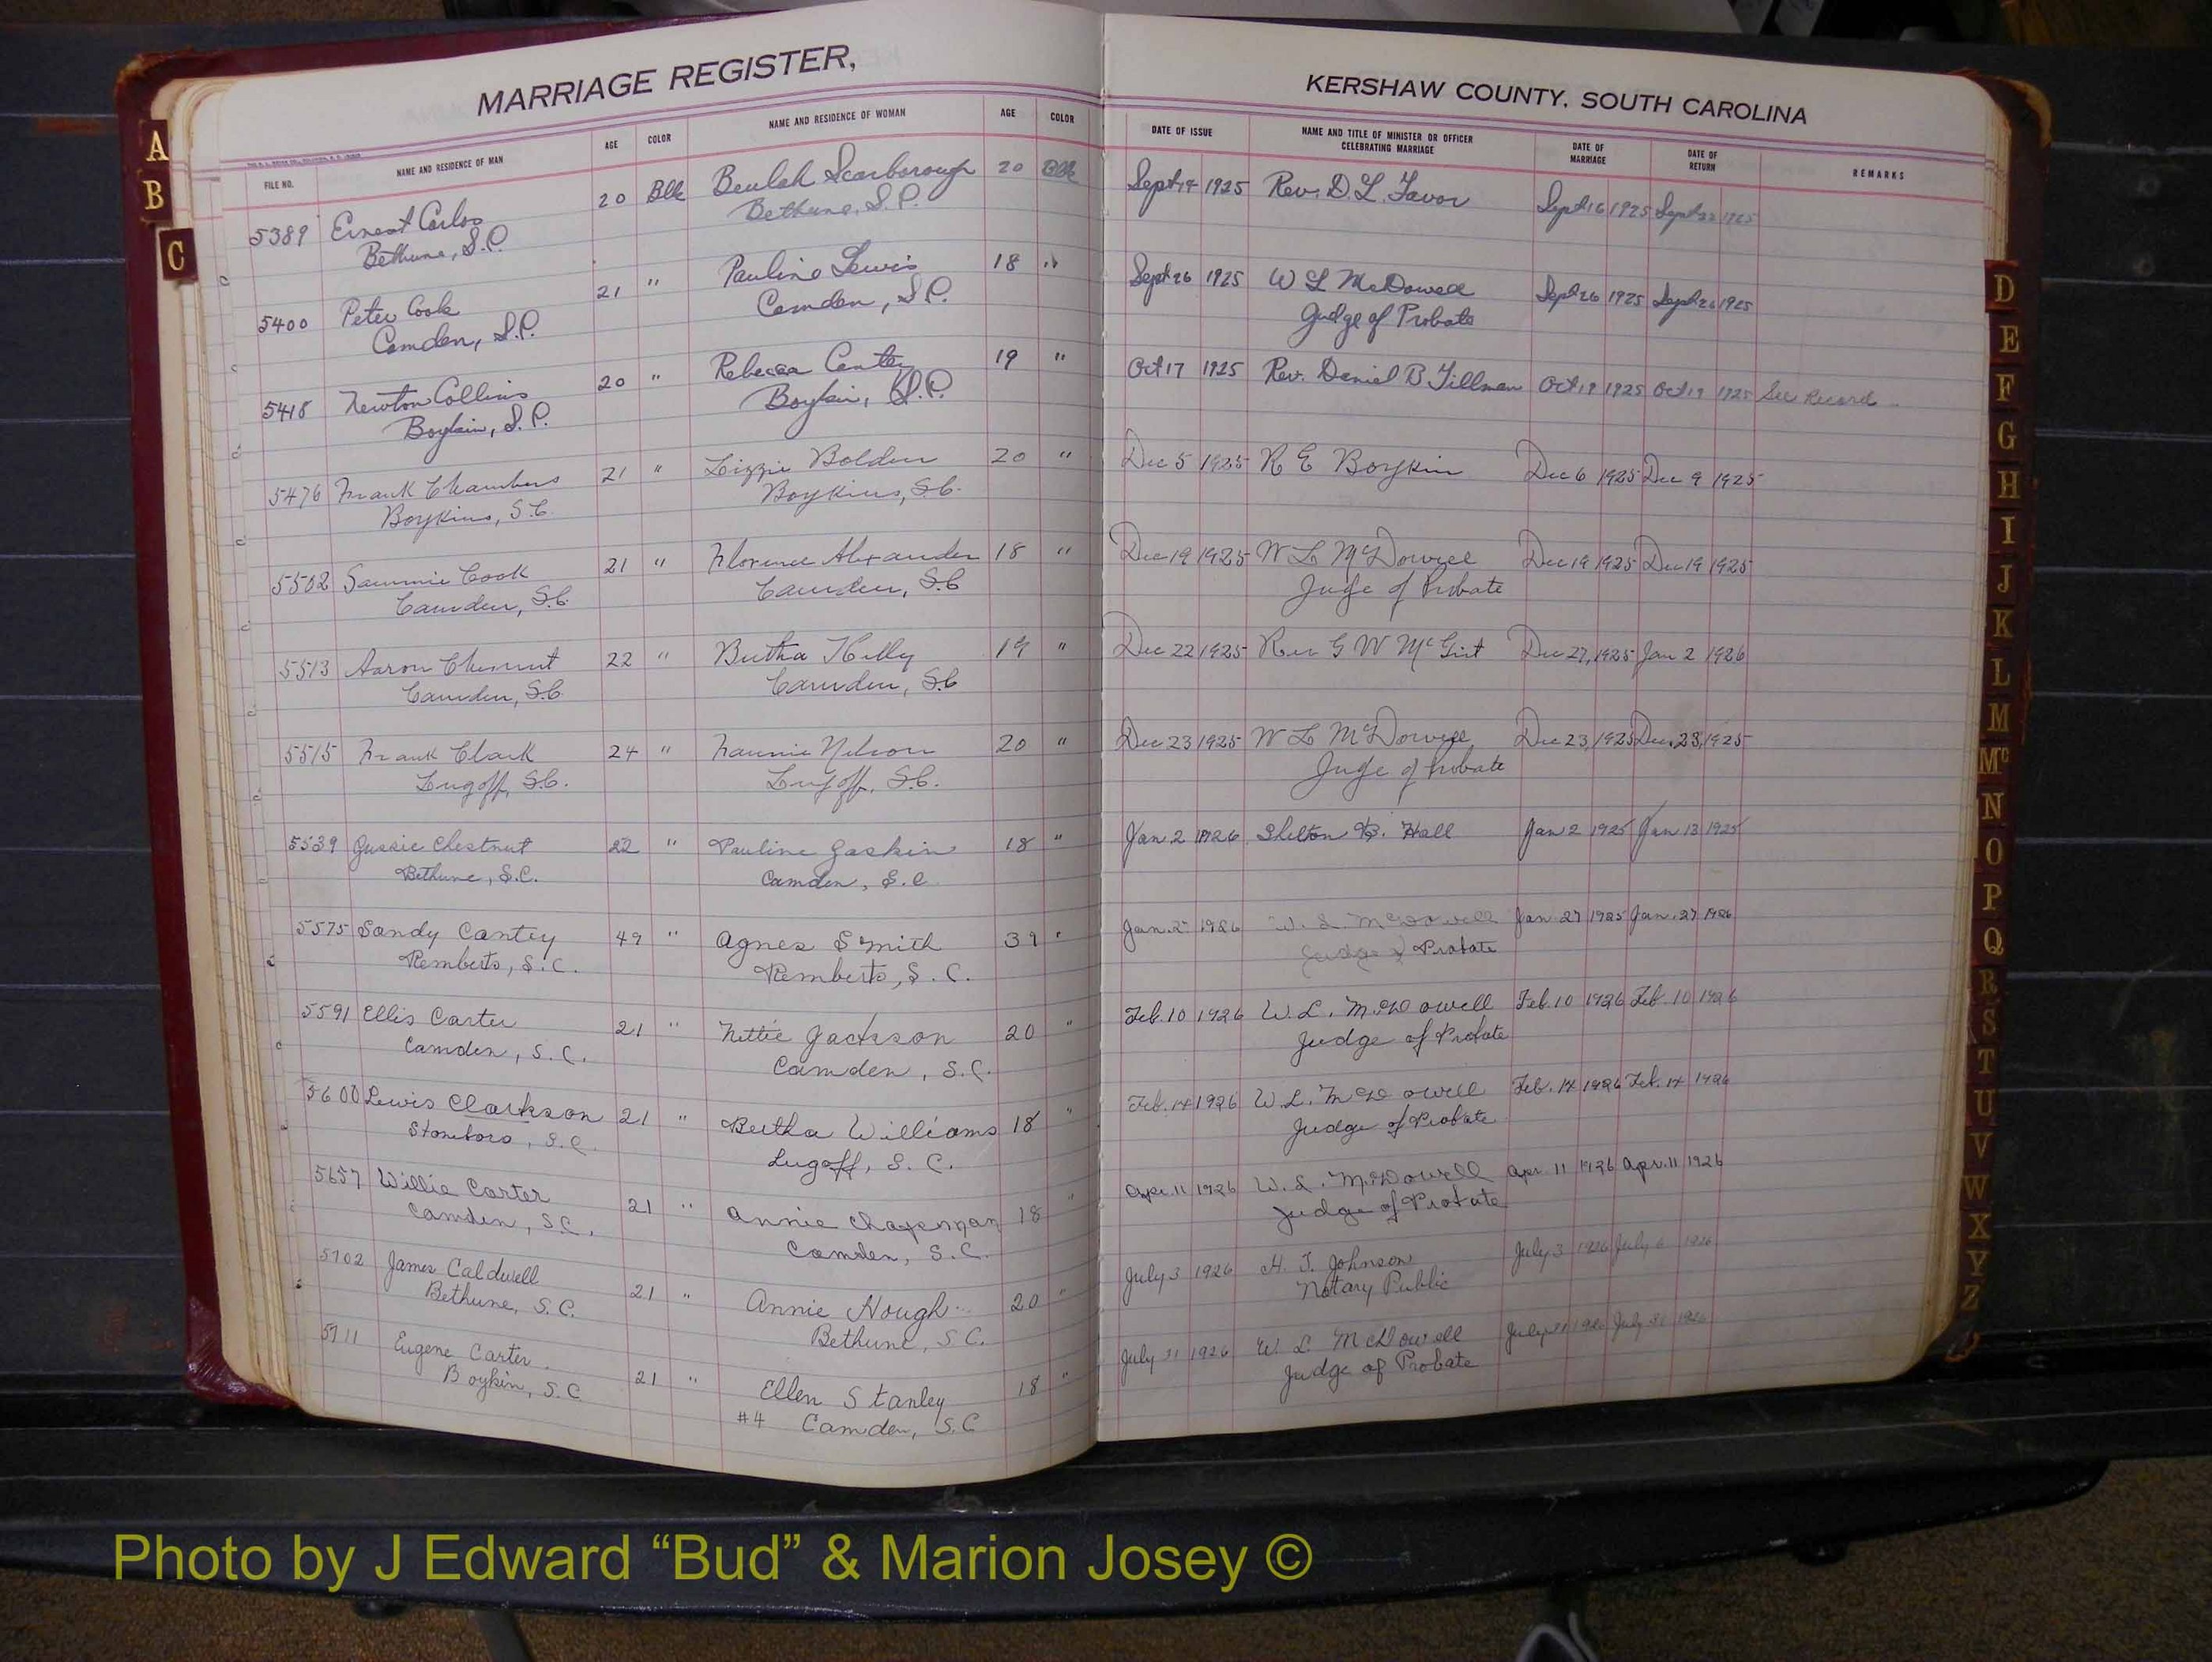 MARRIAGE REGISTER,
KERSHAW COUNTY, SOUTH CAROLINA
FILE NO. NAME AND RESIDENCE OF MAN AGE COLOR NAME AND RESIDENCE OF WOMAN AGE COLOR DATE OF ISSUE NAME AND TITLE OF MINISTER OR OFFICER CELEBRATING MARRIAGE DATE OF MARRIAGE DATE OF RETURN REMARKS
5389 Ernest Carlos 20 Blk Beulah Scarborough 20 Blk Sept 14 1925 Rev. D. L. Favor Sept 16 1925 Sept 22 1925
Bethune, S.C. Bethune, S.C.
5400 Peter Cook 21 " Pauline Lewis 18 " Sept 26 1925 W L McDowell Sept 26 1925 Sept 26 1925
Camden, S.C. Camden, S.C. Judge of Probate
5418 Newton Collins 20 " Rebecca Canter 19 " Oct 17 1925 Rev. Daniel B Tillman Oct 19 1925 Oct 19 1925 See Record
Boykin, S.C. Boykin, S.C.
5476 Frank Chambers 21 " Lizzie Bolden 20 " Dec 5 1925 R E Boykin Dec 6 1925 Dec 9 1925
Boykins, S.C. Boykins, S.C.
5502 Sammie Cook 21 " Florence Alexander 18 " Dec 19 1925 W L McDowell Dec 19 1925 Dec 19 1925
Camden, S.C. Camden, S.C Judge of Probate
5513 Aaron Chesnut 22 " Bertha Kelly 19 " Dec 22 1925 Rev G W McGirt Dec 27, 1925 Jan 2 1926
Camden, S.C Camden, S.C
5515 Frank Clark 24 " Fannie Nelson 20 " Dec 23 1925 W L McDowell Dec 23, 1925 Dec. 23, 1925
Lugoff, S.C. Lugoff, S.C. Judge of Probate
5539 Gussie Chestnut 22 " Pauline Gaskin 18 " Jan 2 1926 Shelton B. Hall Jan 2 1925 Jan 13 1925
Bethune, S.C. Camden, S.C
5575 Sandy Cantey 49 " Agnes Smith 39 " Jan. 1926 W. L. McDowell Jan 27 1925 Jan. 27 1926
Remberts, S.C. Remberts, S.C. Judge of Probate
5591 Ellis Carter 21 " Nettie Jackson 20 " Feb. 10 1926 W. L. McDowell Feb. 10 1926 Feb. 10 1926
Camden, S.C. Camden, S.C. Judge of Probate
5600 Lewis Clarkson 21 " Bertha Williams 18 " Feb. 14 1926 W. L. McDowell Feb. 14 1926 Feb. 14 1926
Stoneboro, S.C. Lugoff, S.C. Judge of Probate
5657 Willie Carter 21 " Annie Chapman 18 " Apr. 11 1926 W. L. McDowell Apr. 11 1926 Apr. 11 1926
Camden, S.C. Camden, S.C. Judge of Probate
5702 James Caldwell 21 " Annie Hough 20 " July 3 1926 H. T. Johnson July 3 1926 July 6 1926
Bethune, S.C. Bethune, S.C. Notary Public
5711 Eugene Carter 21 " Ellen Stanley 18 " July 31 1926 W. L McDowell July 31 1926 July 31 1926
Boykin, S.C #4 Camden, S.C Judge of Probate
A
B
C
D
E
F
G
H
I
J
K
L
M
Mc
N
O
P
Q
R
S
T
U
V
W
X
Y
Z
Photo by J Edward “Bud” & Marion Josey ©